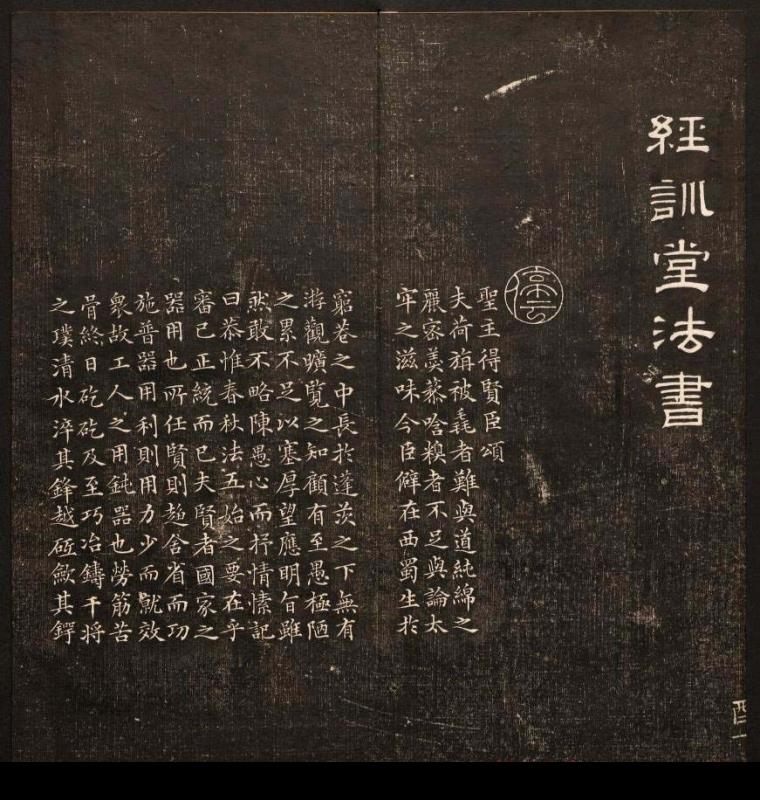 經訓堂法書
停云
聖主得賢臣頌
夫荷旃被毳者難與道純綿之
麗密羹藜唅糗者不足與論太
牢之滋味今臣僻在西蜀生於
窮巷之中長於蓬茨之下無有
游觀曠覽之知顧有至愚極陋
之累不足以塞厚望應明旨雖
然敢不略陳愚心而抒情愫記
曰恭惟春秋法五始之要在乎
審己正統而已夫賢者國家之
器用也所任賢則趍舍省而功
施普器用利則用力少而就效
衆故工人之用鈍器也勞筋苦
骨終日矻矻及至巧冶鑄干將
之璞清水淬其鋒越砥斂其鍔
酉一